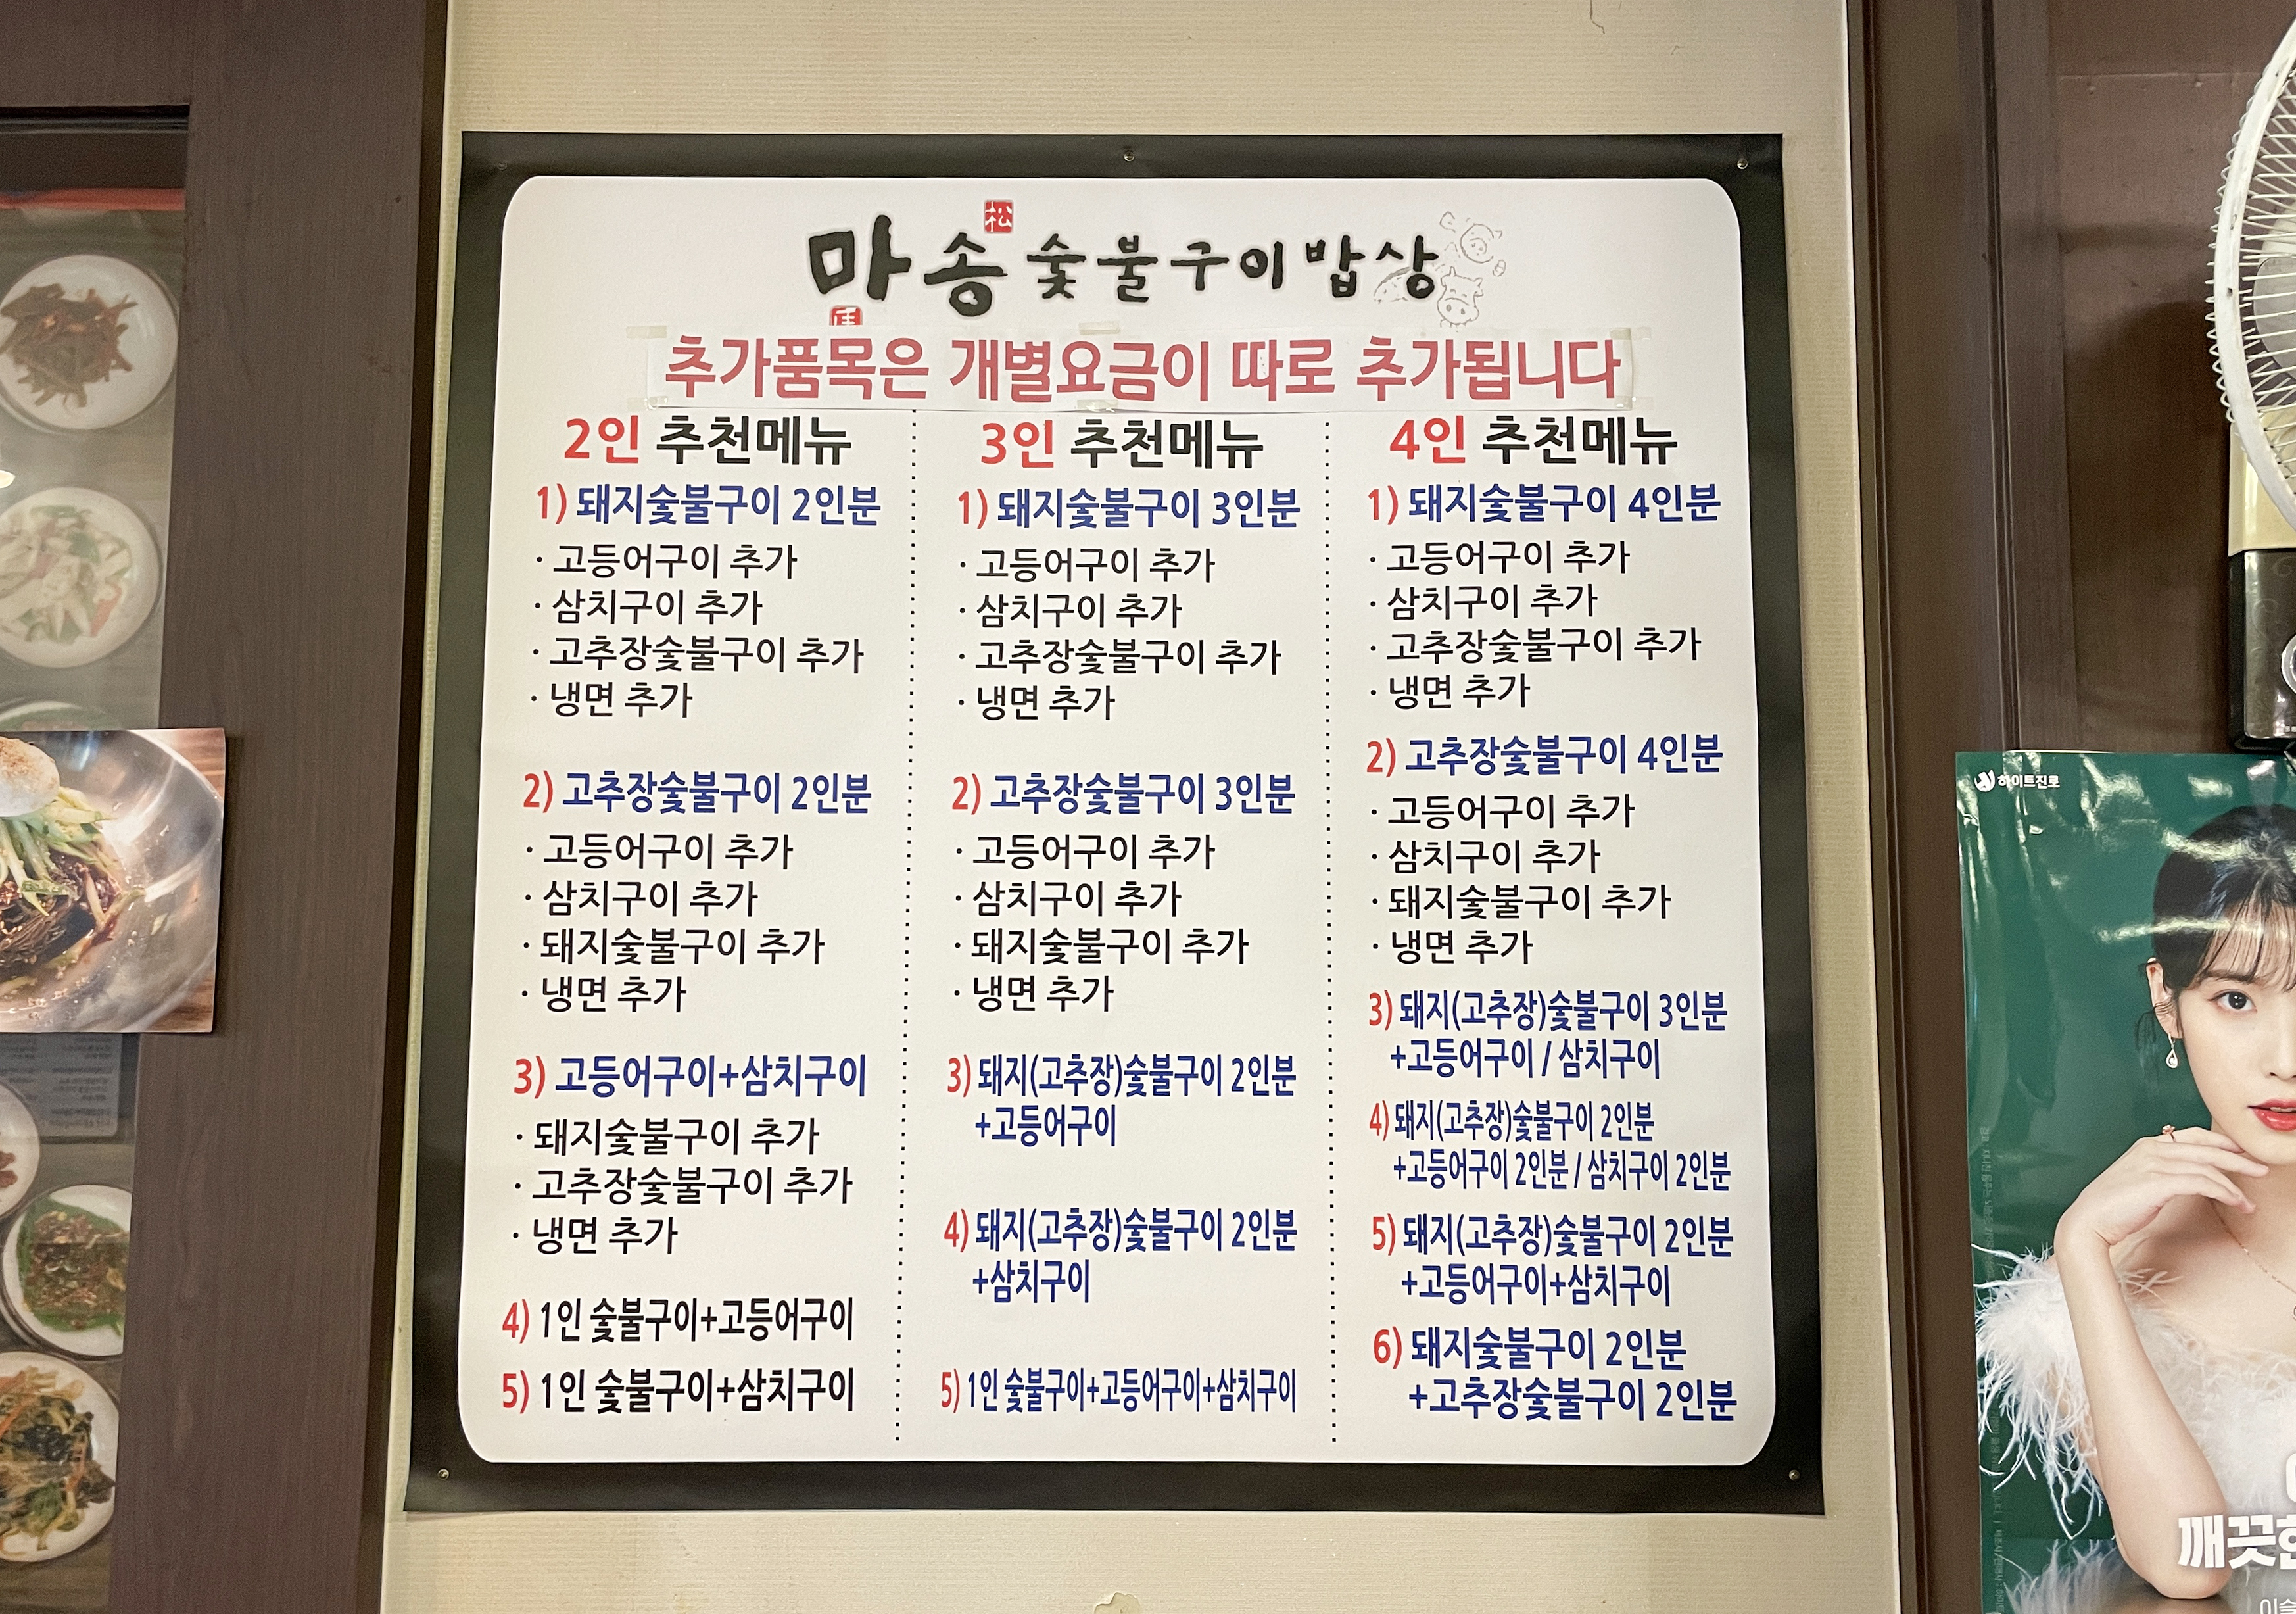 마송 숯불구이밥상
松
추가품목은 개별요금이 따로 추가됩니다
2인 추천메뉴
1) 돼지숯불구이 2인분
· 고등어구이 추가
· 삼치구이 추가
· 고추장숯불구이 추가
· 냉면 추가
2) 고추장숯불구이 2인분
· 고등어구이 추가
· 삼치구이 추가
· 돼지숯불구이 추가
· 냉면 추가
3) 고등어구이+삼치구이
· 돼지숯불구이 추가
· 고추장숯불구이 추가
· 냉면 추가
4) 1인 숯불구이+고등어구이
5) 1인 숯불구이+삼치구이
3인 추천메뉴
1) 돼지숯불구이 3인분
· 고등어구이 추가
· 삼치구이 추가
· 고추장숯불구이 추가
· 냉면 추가
2) 고추장숯불구이 3인분
· 고등어구이 추가
· 삼치구이 추가
· 돼지숯불구이 추가
· 냉면 추가
3) 돼지(고추장)숯불구이 2인분
+고등어구이
4) 돼지(고추장)숯불구이 2인분
+삼치구이
5) 1인 숯불구이+고등어구이+삼치구이
4인 추천메뉴
1) 돼지숯불구이 4인분
· 고등어구이 추가
· 삼치구이 추가
· 고추장숯불구이 추가
· 냉면 추가
2) 고추장숯불구이 4인분
· 고등어구이 추가
· 삼치구이 추가
· 돼지숯불구이 추가
· 냉면 추가
3) 돼지(고추장)숯불구이 3인분
+고등어구이 / 삼치구이
4) 돼지(고추장)숯불구이 2인분
+고등어구이 2인분 / 삼치구이 2인분
5) 돼지(고추장)숯불구이 2인분
+고등어구이+삼치구이
6) 돼지숯불구이 2인분
+고추장숯불구이 2인분
하이트진로
깨끗한